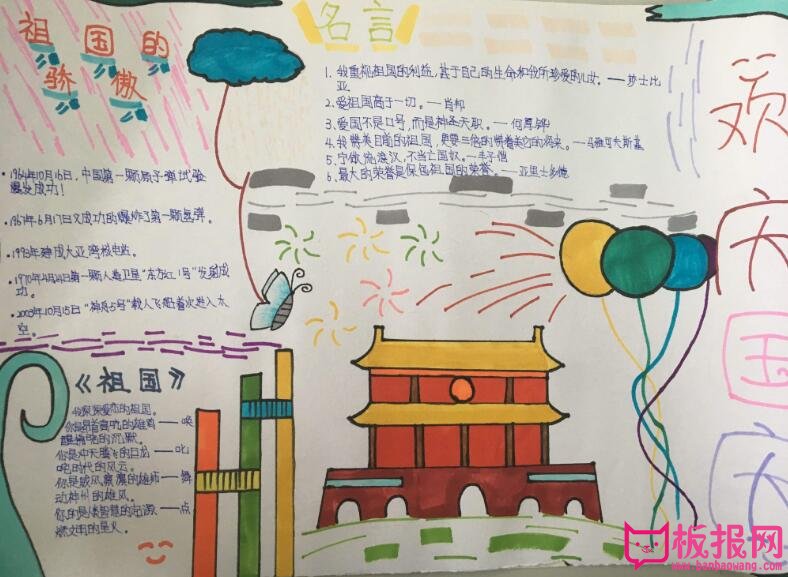 祖国的
骄傲
•1964年10月16日，中国第一颗原子弹试验
爆发成功！
•1967年6月17日又成功的爆炸了第一颗氢弹。
•1993年建成大亚湾核电站。
•1970年4月24日第一颗人造卫星“东方红1号”发射成
功。
•2003年10月15日“神舟5号”载人飞船首次进入太
空。
名言
1. 我重视祖国的利益，甚于自己的生命和我所珍爱的儿女。——莎士比
亚
2.爱祖国高于一切。——肖邦
3.爱国不是口号，而是神圣天职。——何厚铧
4.我赞美目前的祖国，更要三倍的赞美它的将来。——马雅可夫斯基
5.宁做流浪汉，不当亡国奴。—丰子恺
6.最大的荣誉是保包祖国的荣誉。——亚里士多德
欢
庆
国
庆
《祖国》
我深深爱恋的祖国。
你是昂首高吭的雄鸡——唤
醒拂晓的沉默，
你是冲天腾飞的巨龙——叱
咤时代的风云，
你是威风凛凛的雄狮——舞
动神州的雄风，
你的是智慧的起源——点
燃文明的星火。
板报网
www.banbaowang.com